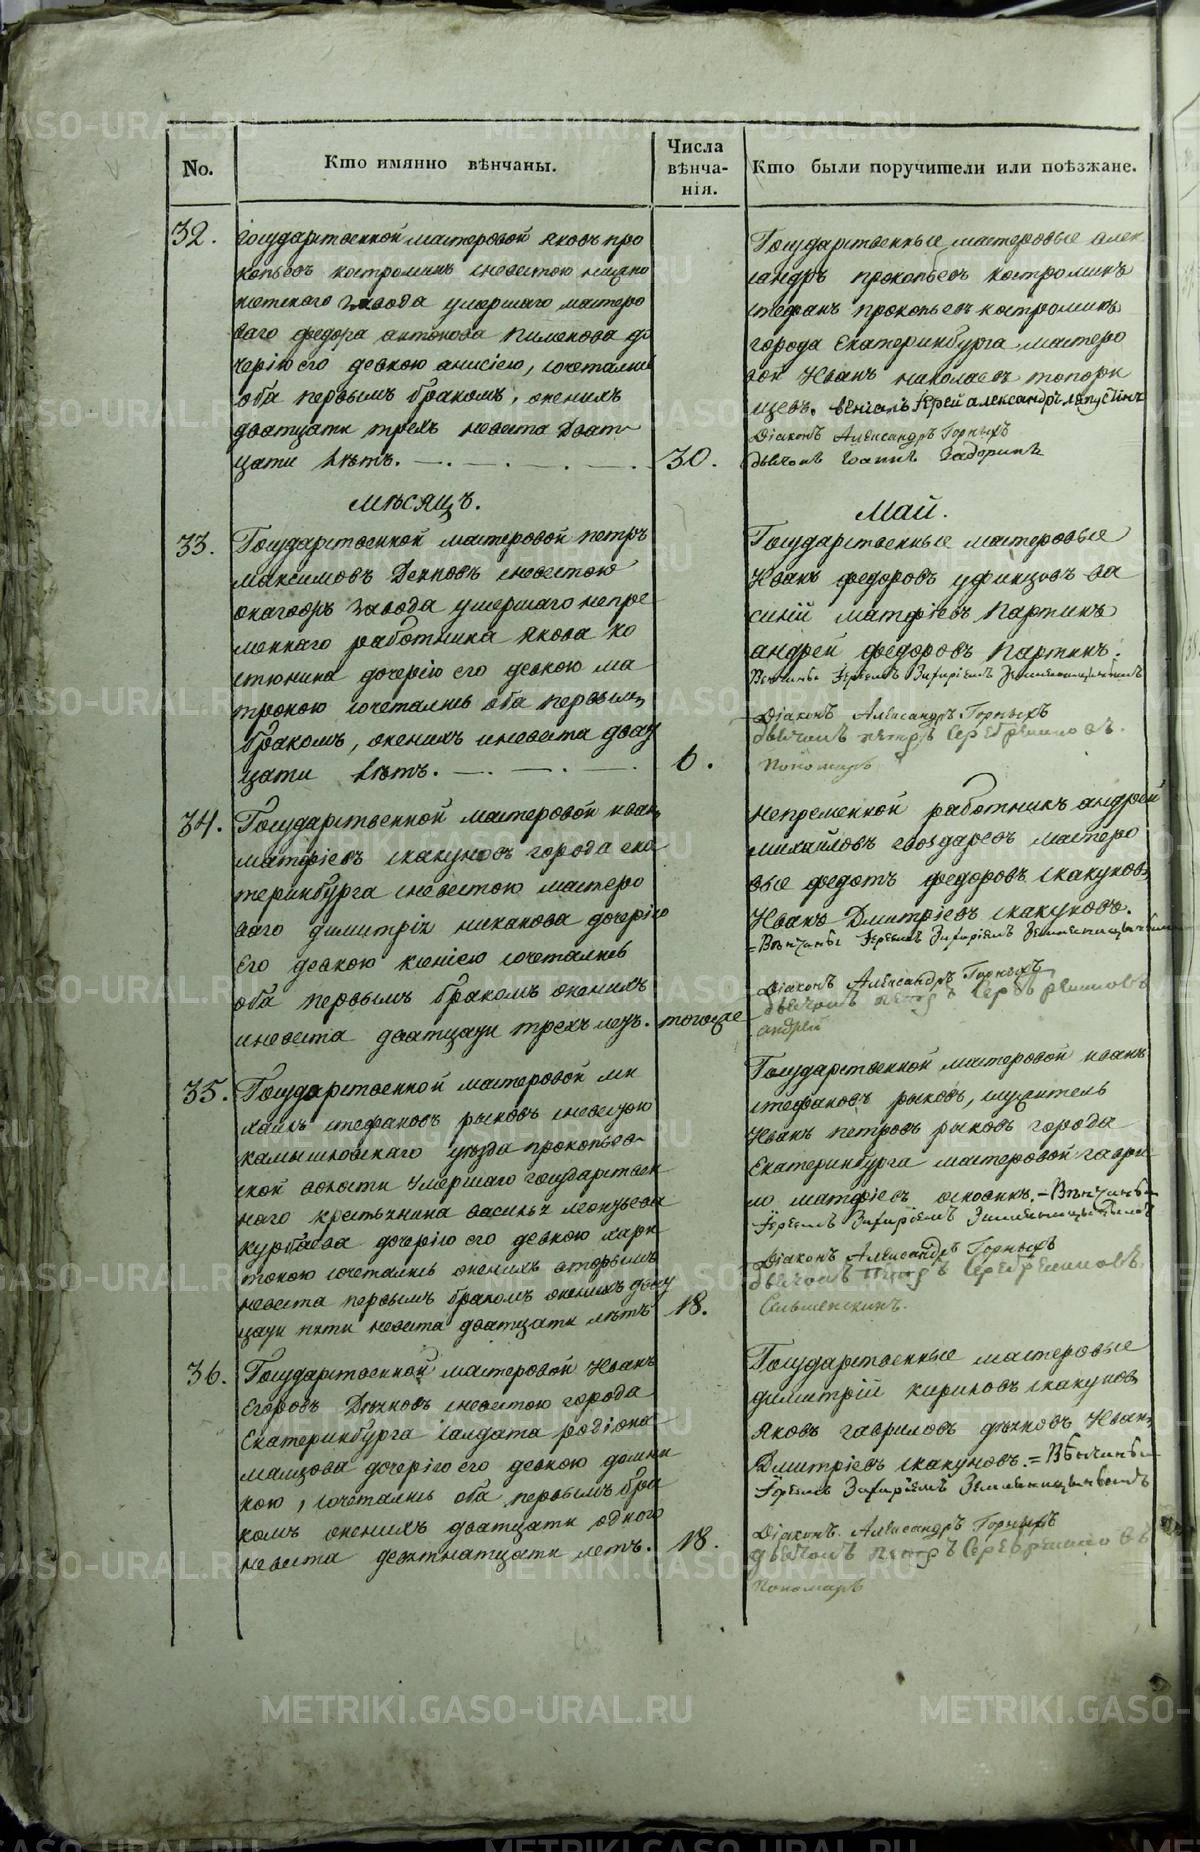 No.
Кто имянно вѣнчаны.
Числа
вѣнча-
нія.
Кто были поручители или поѣзжане.
32.
Государственной мастеровой яковъ про
копьевъ костроминъ сневестою
завода умершаго мастеро
ваго федора антонова пименова до
черію его девкою анисіею, сочетались
оба первымъ бракомъ, женихъ
дватцати трехъ невеста дват
цати лѣтъ.
30.
Государственные мастеровые алек
сандръ прокопьевъ костроминъ
стефанъ прокопьевъ костроминъ
города Екатеринбурга мастеро
вой Иванъ николаевъ топорк
венчалъ Іерей александръ
Діаконъ Александръ Горныхъ
дьячокъ Іоаннъ Задоринъ
мѣсяцъ.
Май.
33.
Государственной мастеровой петръ
максимовъ сневестою
завода умершаго непре
меннаго работника якова ко
стюнина дочерію его девкою ма
троною сочетались оба первымъ
бракомъ, женихъ иневеста двад
цати лѣтъ.
6.
Государственные мастеровые
Иванъ федоровъ уфинцовъ ва
силій матфіевъ Партинъ
андрей федоровъ Партинъ.
Діаконъ Александръ Горныхъ
дьячокъ петръ Серебренниковъ.
Пономарь
34.
Государственной мастеровой иванъ
матфіевъ скакуновъ города ека
теринбурга сневестою мастеро
ваго димитрія дочерію
его девкою ксеніею сочетались
оба первымъ бракомъ женихъ
иневеста дватцати трехъ летъ.
тогоже
непременной работникъ андрей
михайловъ гвоздаревъ мастеро
вые федотъ федоровъ скакуновъ,
Иванъ Дмитріевъ скакуновъ.
Діаконъ Александръ Горныхъ
дьячокъ петръ Серебренниковъ
андрей
35.
Государственной мастеровой ми
хаилъ стефановъ рыковъ сневестою
камышловскаго уезда прокопьев
ской волости умершаго государствен
наго крестьянина василья леонтьева
курбаева дочерію его девкою хари
тоною сочетались женихъ вторымъ
невеста первымъ бракомъ женихъ двад
цати пяти невеста дватцати лѣтъ
18.
Государственной мастеровой иванъ
стефановъ рыковъ, служитель
Иванъ петровъ рыковъ города
Екатеринбурга мастеровой гаври
ло матфіевъ
Діаконъ Александръ Горныхъ
дьячокъ Петръ Серебренниковъ.
36.
Государственной мастеровой Иванъ
Егоровъ Дьячковъ сневестою города
Екатеринбурга салдата родіона
малцова дочерію его девкою домни
кою, сочетались оба первымъ бра
комъ женихъ дватцати одного
невеста девятнатцати летъ.
18.
Государственные мастеровые
димитрій кириловъ скакуновъ
яковъ гавриловъ дьячковъ Иванъ
Дмитріевъ скакуновъ.
Діаконъ Александръ Горныхъ
дьячокъ петръ Серебренниковъ
Пономарь
METRIKI.GASO-URAL.RU